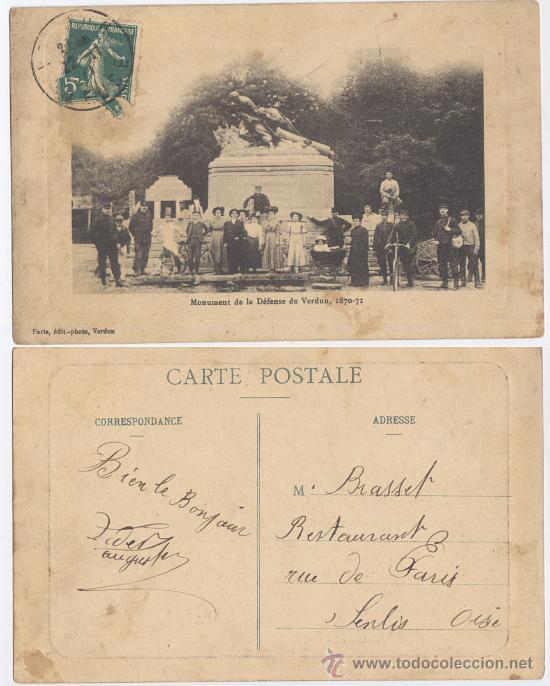 RÉPUBLIQUE FRANÇAISE
5
Monument de la Défense de Verdun, 1870-71
Paris, édit.-photo, Verdun
CARTE POSTALE
CORRESPONDANCE
ADRESSE
Bien le Bonjour
M. Brasset
Restaurant
rue de Paris
Senlis Oise
www.todocoleccion.net